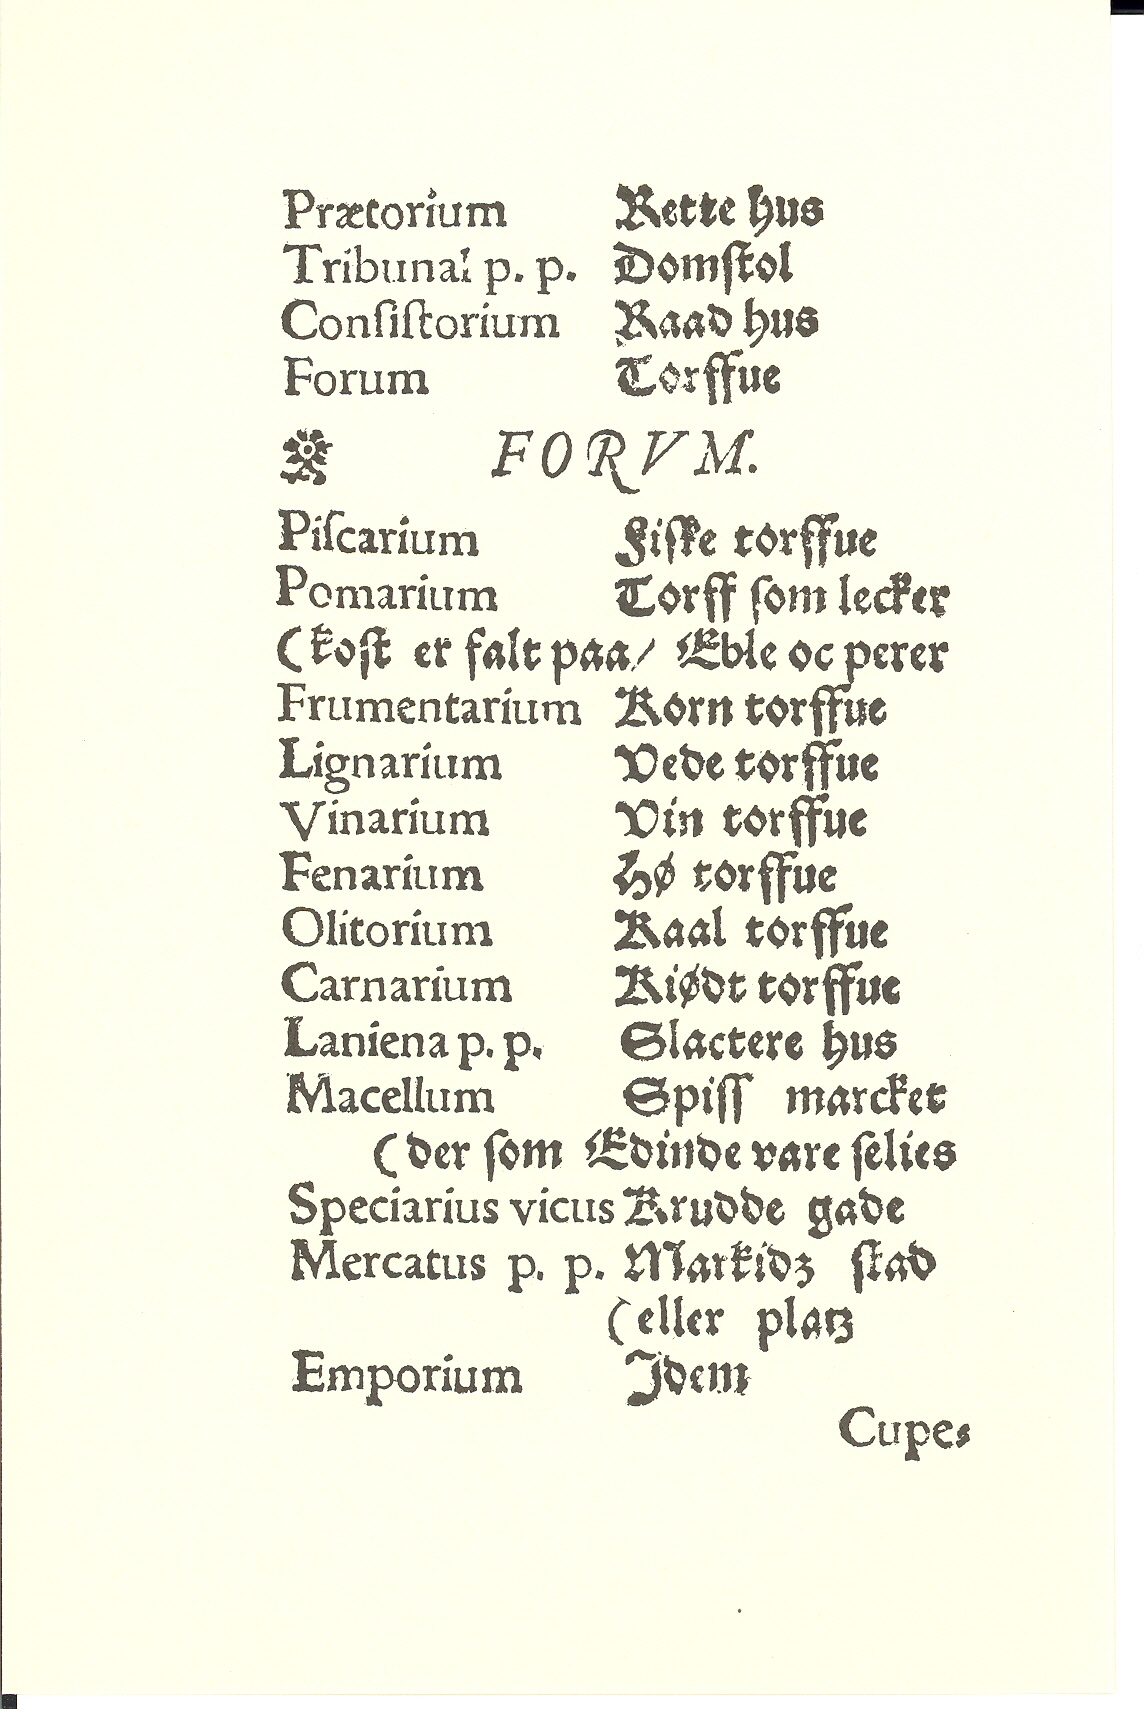 Prætorium Rette hus
Tribunal p. p. Domſtol
Conſiſtorium Raad hus
Forum Torffue
FORVM.
Piſcarium Fiſke torffue
Pomarium Torff ſom lecker
(koſt er falt paa/ Eble oc perer
Frumentarium Korn torffue
Lignarium Vede torffue
Vinarium Vin torffue
Fenarium Hø torffue
Olitorium Kaal torffue
Carnarium Kiødt torffue
Laniena p. p. Slactere hus
Macellum Spiſſ marcket
(der ſom Edinde vare ſelies
Speciarius vicus Krudde gade
Mercatus p. p. Markidz ſtad
(eller platz
Emporium Idem
Cupes